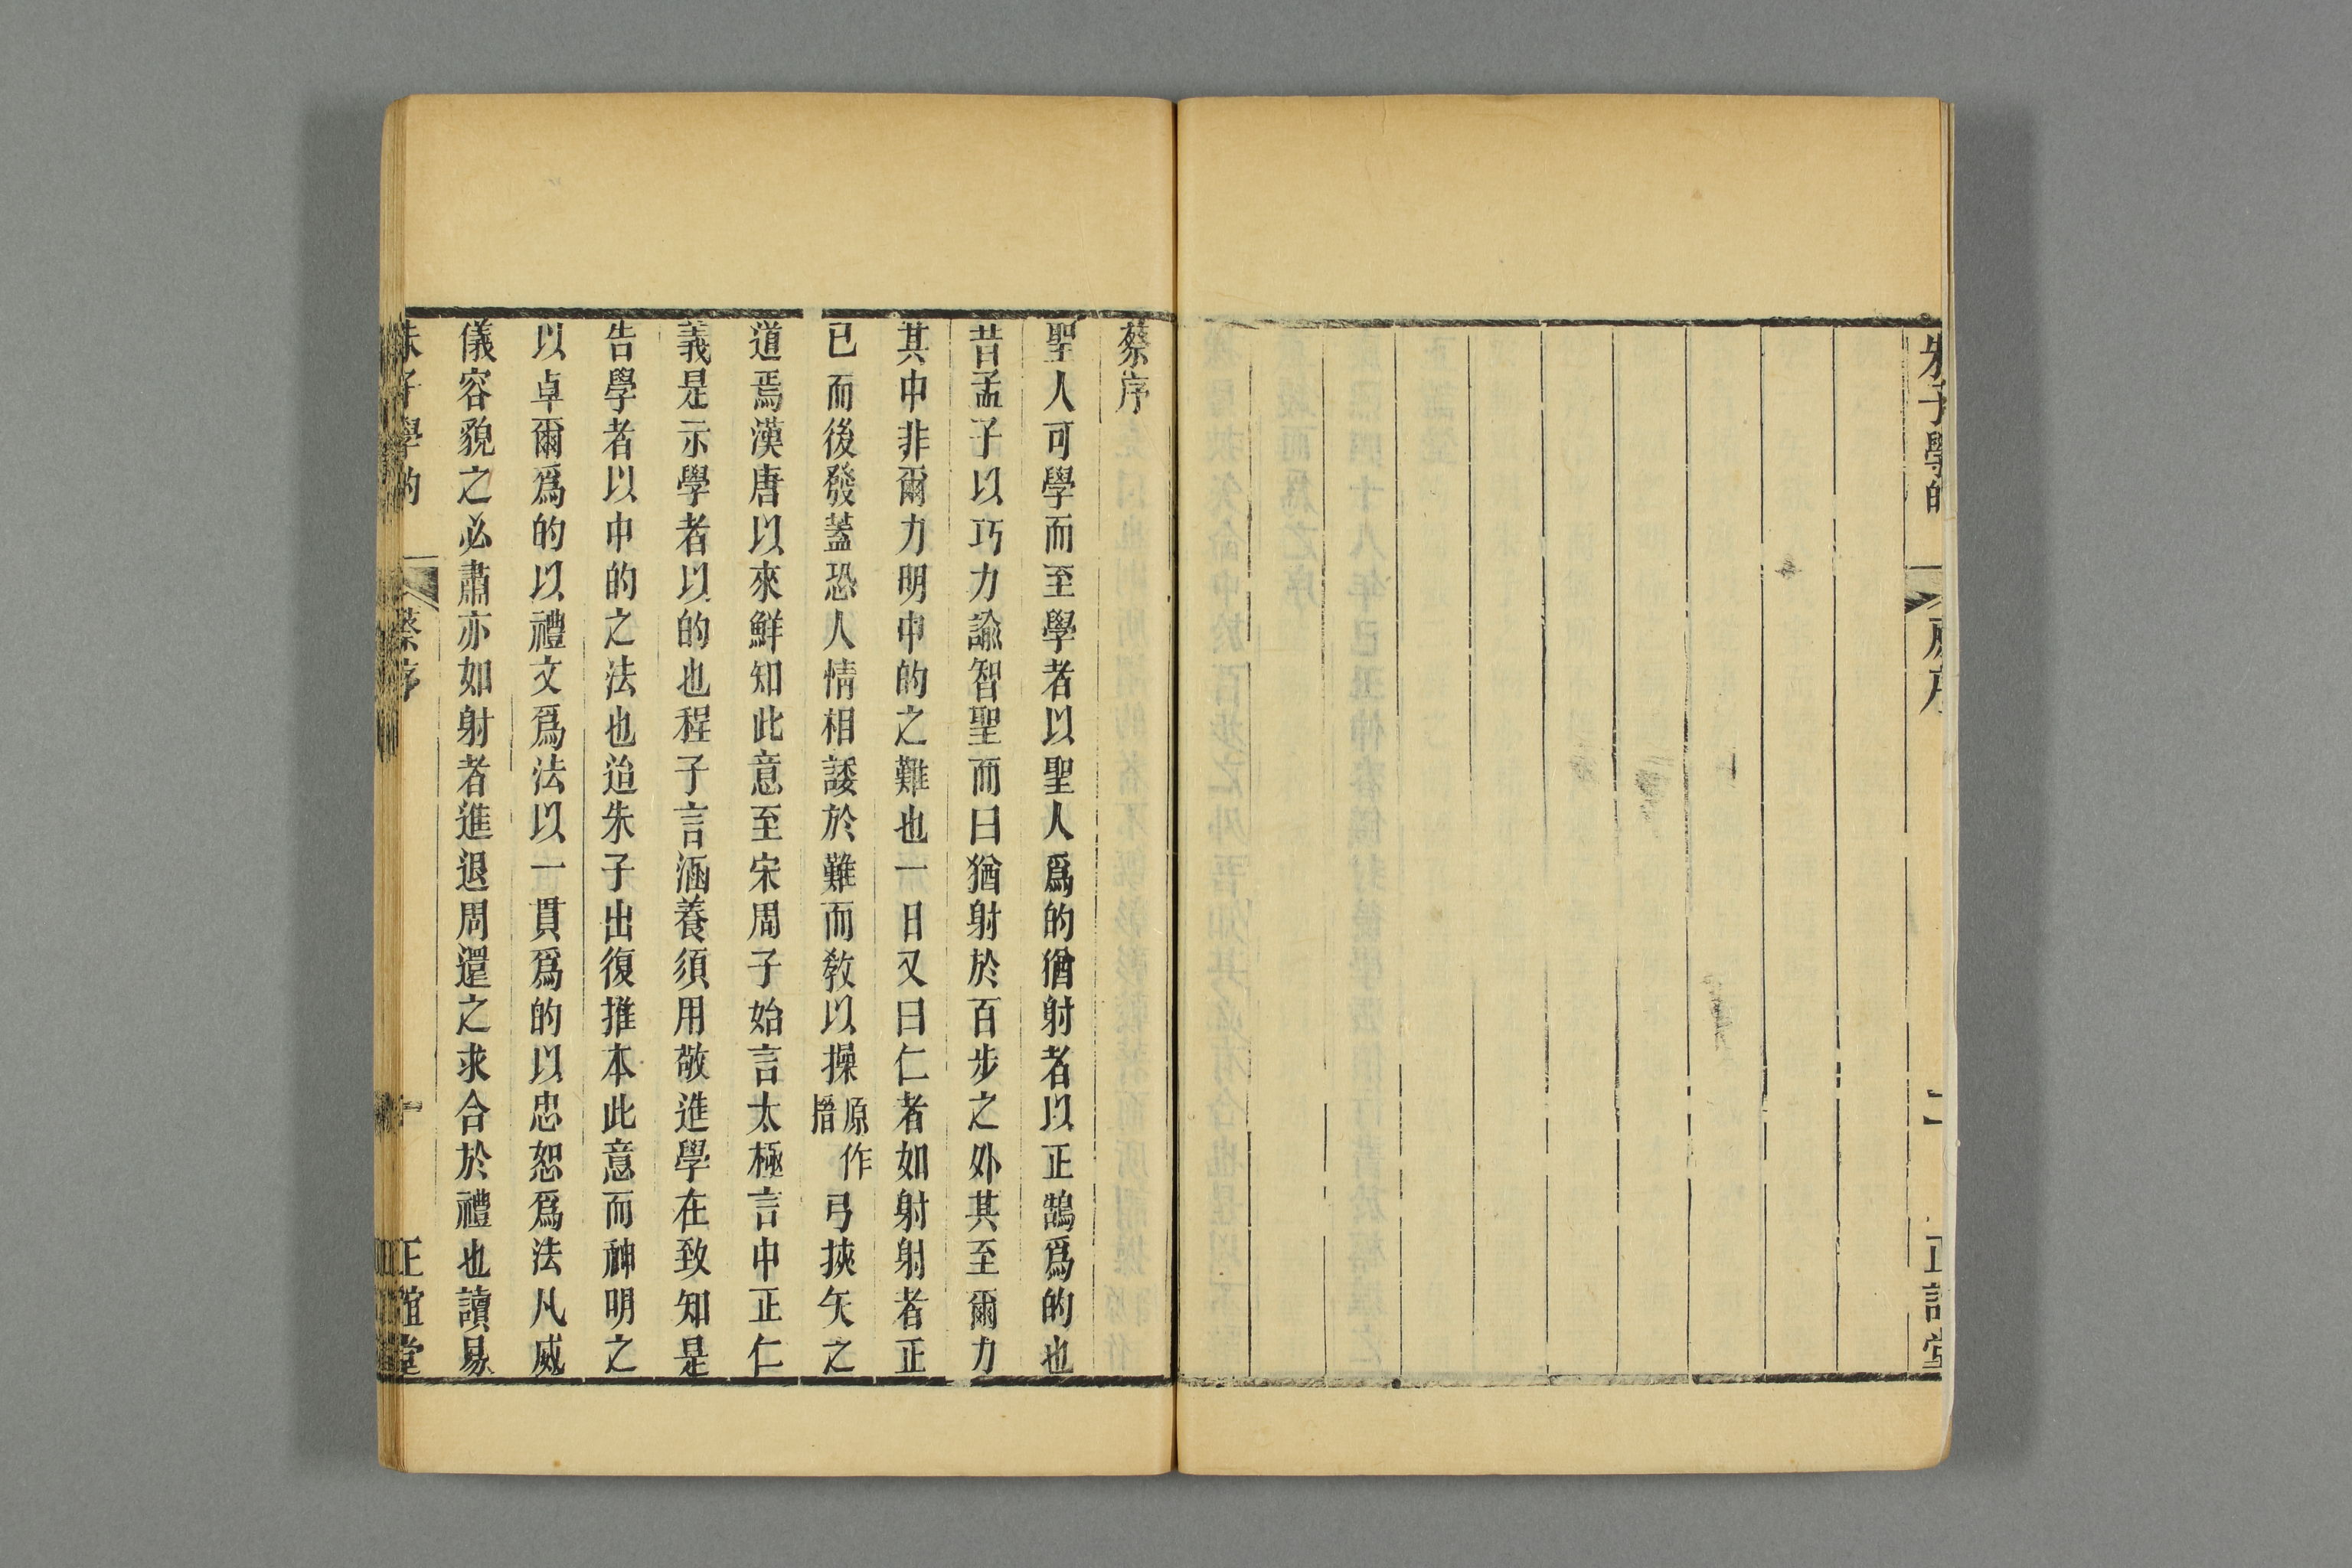 朱子學的
原序
二
正誼堂
蔡序
聖人可學而至學者以聖人爲的猶射者以正鵠爲的也
昔孟子以巧力諭智聖而曰猶射於百步之外其至爾力
其中非爾力明中的之難也一日又曰仁者如射射者正
已而後發蓋恐人情相諉於難而敎以操原作㨷弓挾矢之
道焉漢唐以來鮮知此意至宋周子始言太極言中正仁
義是示學者以的也程子言涵養須用敬進學在致知是
告學者以中的之法也迨朱子出復推本此意而神明之
以卓爾爲的以禮文爲法以一貫爲的以忠恕爲法凡威
儀容貌之必肅亦如射者進退周還之求合於禮也讀易
朱子學的
蔡序
一
正誼堂